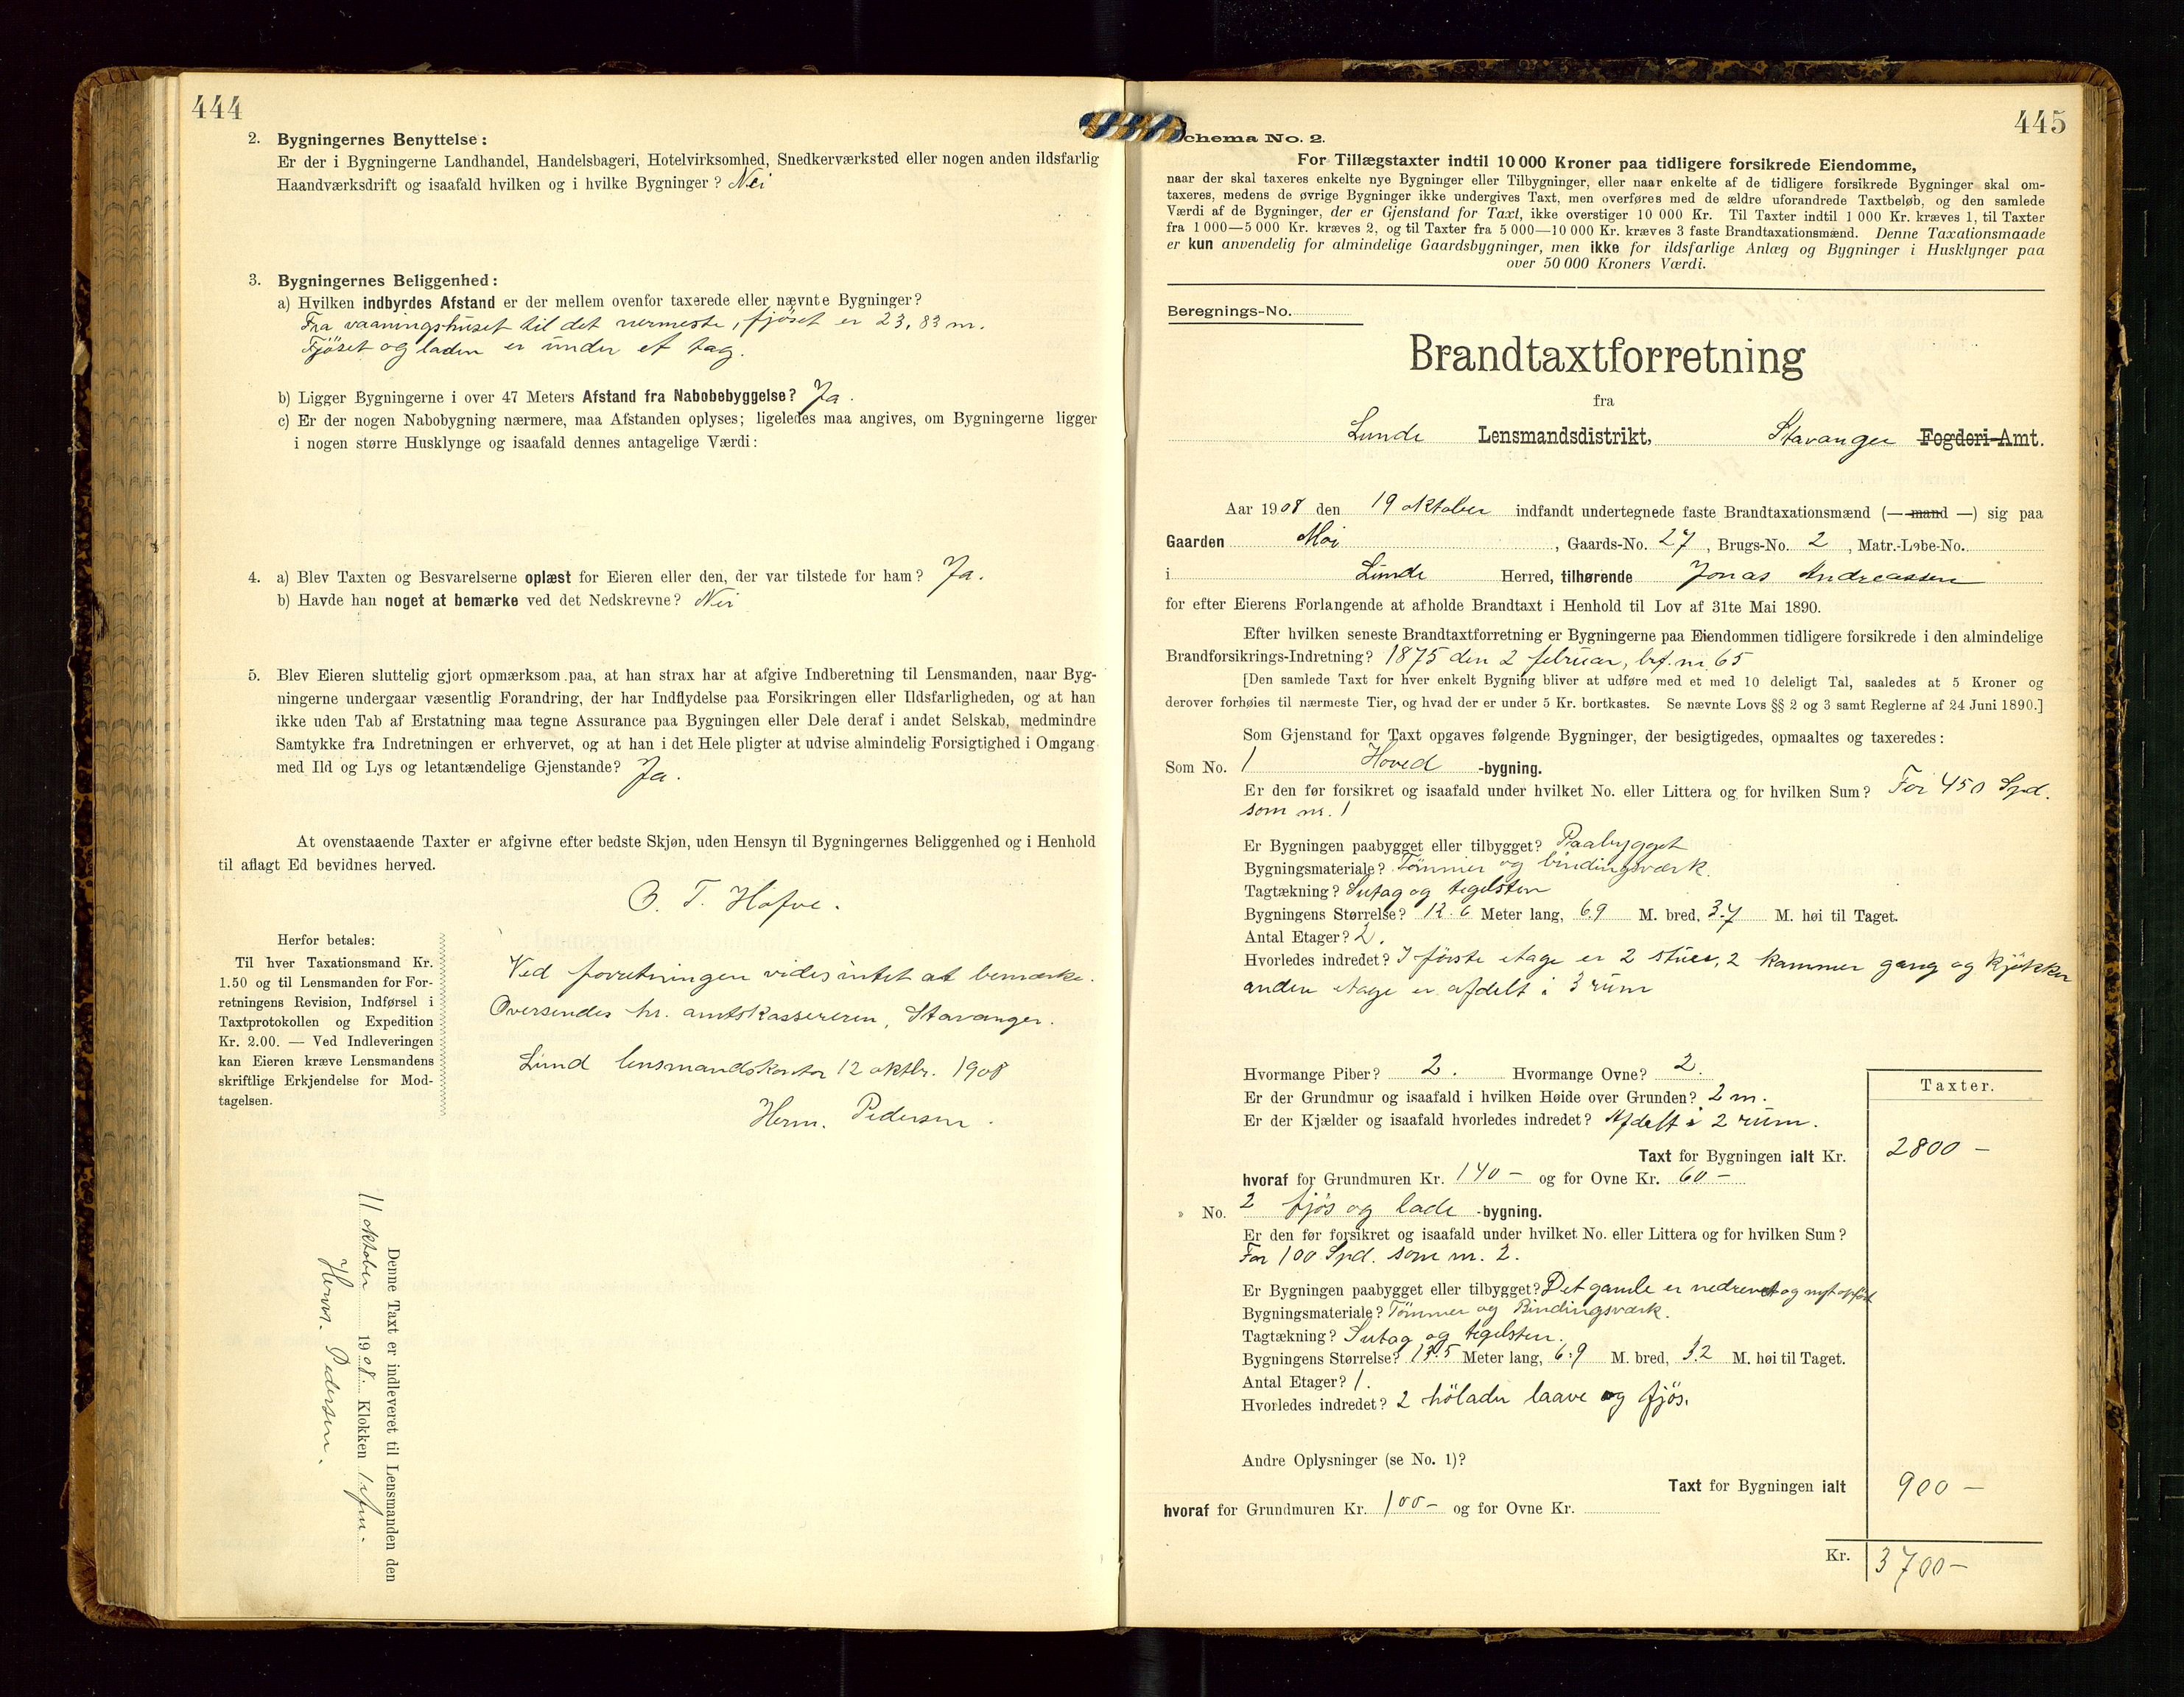 444
2. Bygningernes Benyttelse:
Er der i Bygningerne Landhandel, Handelsbageri, Hotelvirksomhed, Snedkerværksted eller nogen anden ildsfarlig
Haandværksdrift og isaafald hvilken og i hvilke Bygninger? Nei
3. Bygningernes Beliggenhed:
a) Hvilken indbyrdes Afstand er der mellem ovenfor taxerede eller nævnte Bygninger?
Fra vaaningshuset til det nermeste, fjöset er 23,83 m.
Fjöset og laden er under et tag.
b) Ligger Bygningerne i over 47 Meters Afstand fra Nabobebyggelse? Ja.
c) Er der nogen Nabobygning nærmere, maa Afstanden oplyses; ligeledes maa angives, om Bygningerne ligger
i nogen større Husklynge og isaafald dennes antagelige Værdi:
4. a) Blev Taxten og Besvarelserne oplæst for Eieren eller den, der var tilstede for ham? Ja.
b) Havde han noget at bemærke ved det Nedskrevne? Nei
5. Blev Eieren sluttelig gjort opmærksom paa, at han strax har at afgive Indberetning til Lensmanden, naar Byg-
ningerne undergaar væsentlig Forandring, der har Indflydelse paa Forsikringen eller Ildsfarligheden, og at han
ikke uden Tab af Erstatning maa tegne Assurance paa Bygningen eller Dele deraf i andet Selskab, medmindre
Samtykke fra Indretningen er erhvervet, og at han i det Hele pligter at udvise almindelig Forsigtighed i Omgang
med Ild og Lys og letantændelige Gjenstande? Ja.
At ovenstaaende Taxter er afgivne efter bedste Skjøn, uden Hensyn til Bygningernes Beliggenhed og i Henhold
til aflagt Ed bevidnes herved.
O. T. Hafve.
Herfor betales:
Til hver Taxationsmand Kr.
1.50 og til Lensmanden for For-
retningens Revision, Indførsel i
Taxtprotokollen og Expedition
Kr. 2.00. — Ved Indleveringen
kan Eieren kræve Lensmandens
skriftlige Erkjendelse for Mod-
tagelsen.
Ved forretningen vides intet at bemærke.
Oversendes hr. amtskassereren, Stavanger.
Lund lensmandskontor 12 oktbr. 1908
Herm. Pedersen.
Denne Taxt er indleveret til Lensmanden den
11 oktober 1908. Klokken
Herm. Pedersen.
445
Schema No. 2.
For Tillægstaxter indtil 10 000 Kroner paa tidligere forsikrede Eiendomme,
naar der skal taxeres enkelte nye Bygninger eller Tilbygninger, eller naar enkelte af de tidligere forsikrede Bygninger skal om-
taxeres, medens de øvrige Bygninger ikke undergives Taxt, men overføres med de ældre uforandrede Taxtbeløb, og den samlede
Værdi af de Bygninger, der er Gjenstand for Taxt, ikke overstiger 10 000 Kr. Til Taxter indtil 1 000 Kr. kræves 1, til Taxter
fra 1 000—5 000 Kr. kræves 2, og til Taxter fra 5 000—10 000 Kr. kræves 3 faste Brandtaxationsmænd. Denne Taxationsmaade
er kun anvendelig for almindelige Gaardsbygninger, men ikke for ildsfarlige Anlæg og Bygninger i Husklynger paa
over 50 000 Kroners Værdi.
Beregnings-No.
Brandtaxtforretning
fra
Lunde Lensmandsdistrikt, Stavanger Fogderi-Amt.
Aar 1908 den 19 oktober indfandt undertegnede faste Brandtaxationsmænd (— mand —) sig paa
Gaarden Moi, Gaards-No. 27, Brugs-No. 2, Matr.-Løbe-No.
i Lunde Herred, tilhørende Jonas Andreassen
for efter Eierens Forlangende at afholde Brandtaxt i Henhold til Lov af 31te Mai 1890.
Efter hvilken seneste Brandtaxtforretning er Bygningerne paa Eiendommen tidligere forsikrede i den almindelige
Brandforsikrings-Indretning? 1875 den 2 februar, brf. nr. 65
[Den samlede Taxt for hver enkelt Bygning bliver at udføre med et med 10 deleligt Tal, saaledes at 5 Kroner og
derover forhøies til nærmeste Tier, og hvad der er under 5 Kr. bortkastes. Se nævnte Lovs §§ 2 og 3 samt Reglerne af 24 Juni 1890.]
Som Gjenstand for Taxt opgaves følgende Bygninger, der besigtigedes, opmaaltes og taxeredes:
Som No. 1 Hoved -bygning.
Er den før forsikret og isaafald under hvilket No. eller Littera og for hvilken Sum? For 450 Spd.
som nr. 1
Er Bygningen paabygget eller tilbygget? Paabygget
Bygningsmateriale? Tømmer og bindingsværk.
Tagtækning? Sutag og tegelsten
Bygningens Størrelse? 12.6 Meter lang, 6.9 M. bred, 3.7 M. høi til Taget.
Antal Etager? 2.
Hvorledes indredet? I förste etage er 2 stuer, 2 kammer gang og kjøkken
anden etage er afdelt i 3 rum
Hvormange Piber? 2. Hvormange Ovne? 2.
Er der Grundmur og isaafald i hvilken Høide over Grunden? 2 m.
Er der Kjælder og isaafald hvorledes indredet? Afdelt i 2 rum.
Taxter.
Taxt for Bygningen ialt Kr. 2800 —
hvoraf for Grundmuren Kr. 140 — og for Ovne Kr. 60 —
» No. 2 fjös og lade -bygning.
Er den før forsikret og isaafald under hvilket No. eller Littera og for hvilken Sum?
For 100 Spd. som nr. 2.
Er Bygningen paabygget eller tilbygget? Det gamle er nedrevet og nyt opfört
Bygningsmateriale? Tömmer og Bindingsværk.
Tagtækning? Sutag og tegelsten.
Bygningens Størrelse? 13.5 Meter lang, 6.9 M. bred, 3.2 M. høi til Taget.
Antal Etager? 1.
Hvorledes indredet? 2 hölader laave og fjös.
Andre Oplysninger (se No. 1)?
Taxt for Bygningen ialt 900 —
hvoraf for Grundmuren Kr. 100 — og for Ovne Kr.
Kr. 3700 —